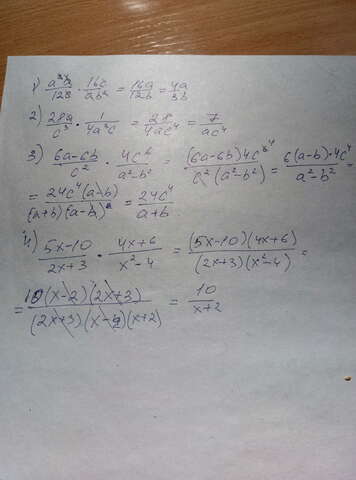 1) a²b/12c · 16c/ab² = 16a/12b = 4a/3b
2) 28a/c³ · 1/4a²c = 28/4ac⁴ = 7/ac⁴
3) 6a-6b/c² · 4c⁶/a²-b² = (6a-6b)4c⁶ ⁴/c²(a²-b²) = 6(a-b)·4c⁴/a²-b² =
= 24c⁴(a-b)/(a+b)(a-b) = 24c⁴/a+b
4) 5x-10/2x+3 · 4x+6/x²-4 = (5x-10)(4x+6)/(2x+3)(x²-4) =
= 10(x-2)(2x+3)/(2x+3)(x-2)(x+2) = 10/x+2